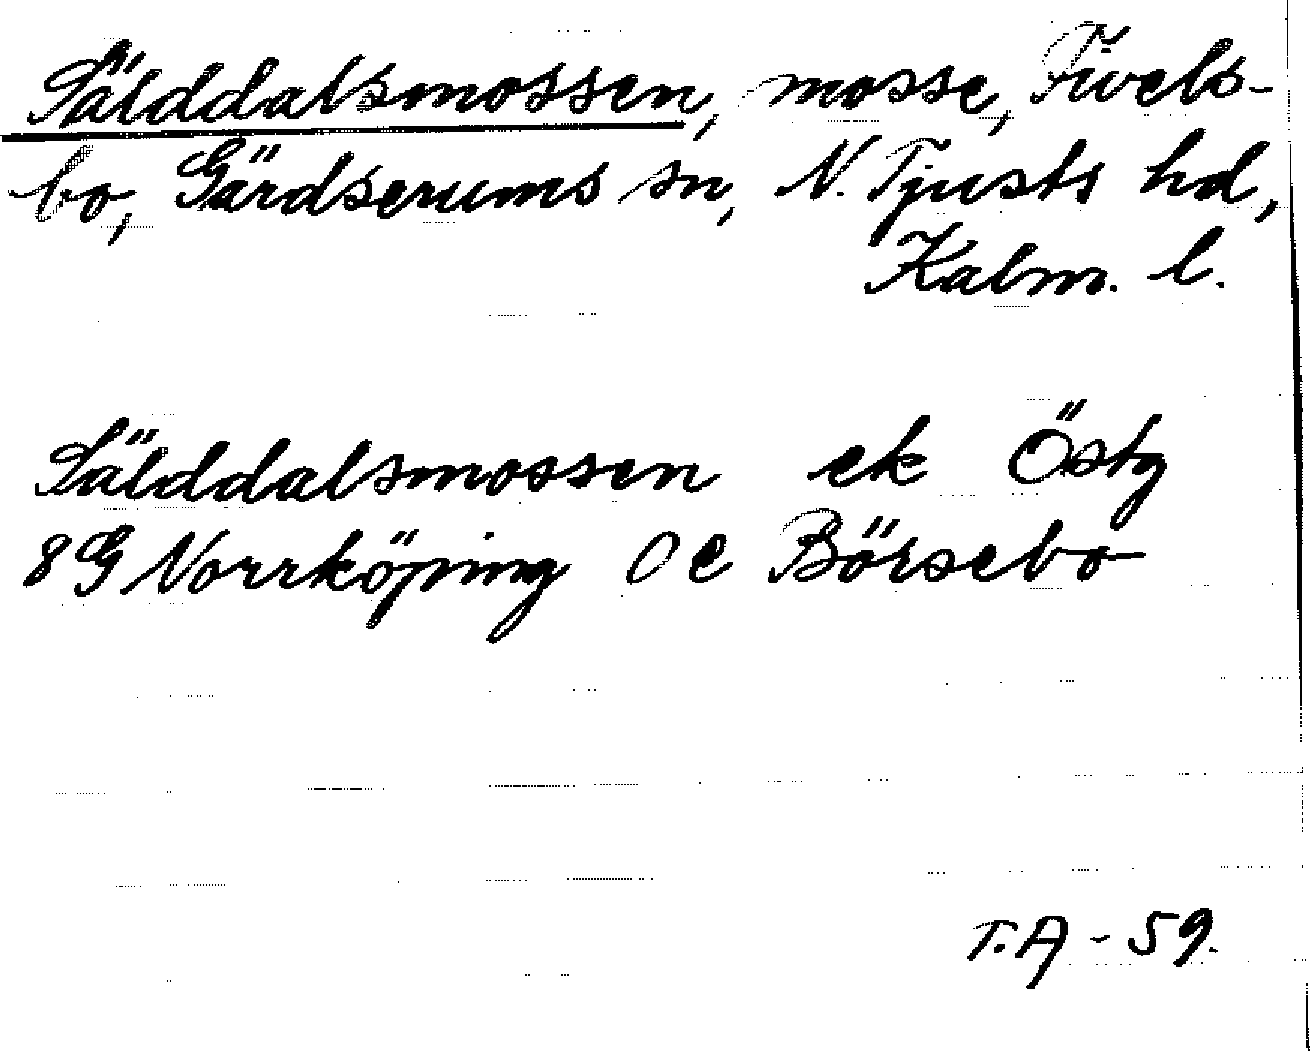 Sälddalsmossen, mosse, Fivels-
bo, Gärdserums sn, N. Tjusts hd,
Kalm. l.
Sälddalsmossen ek Östg
8G Norrköping 0e Börsebo
T.A - 59.